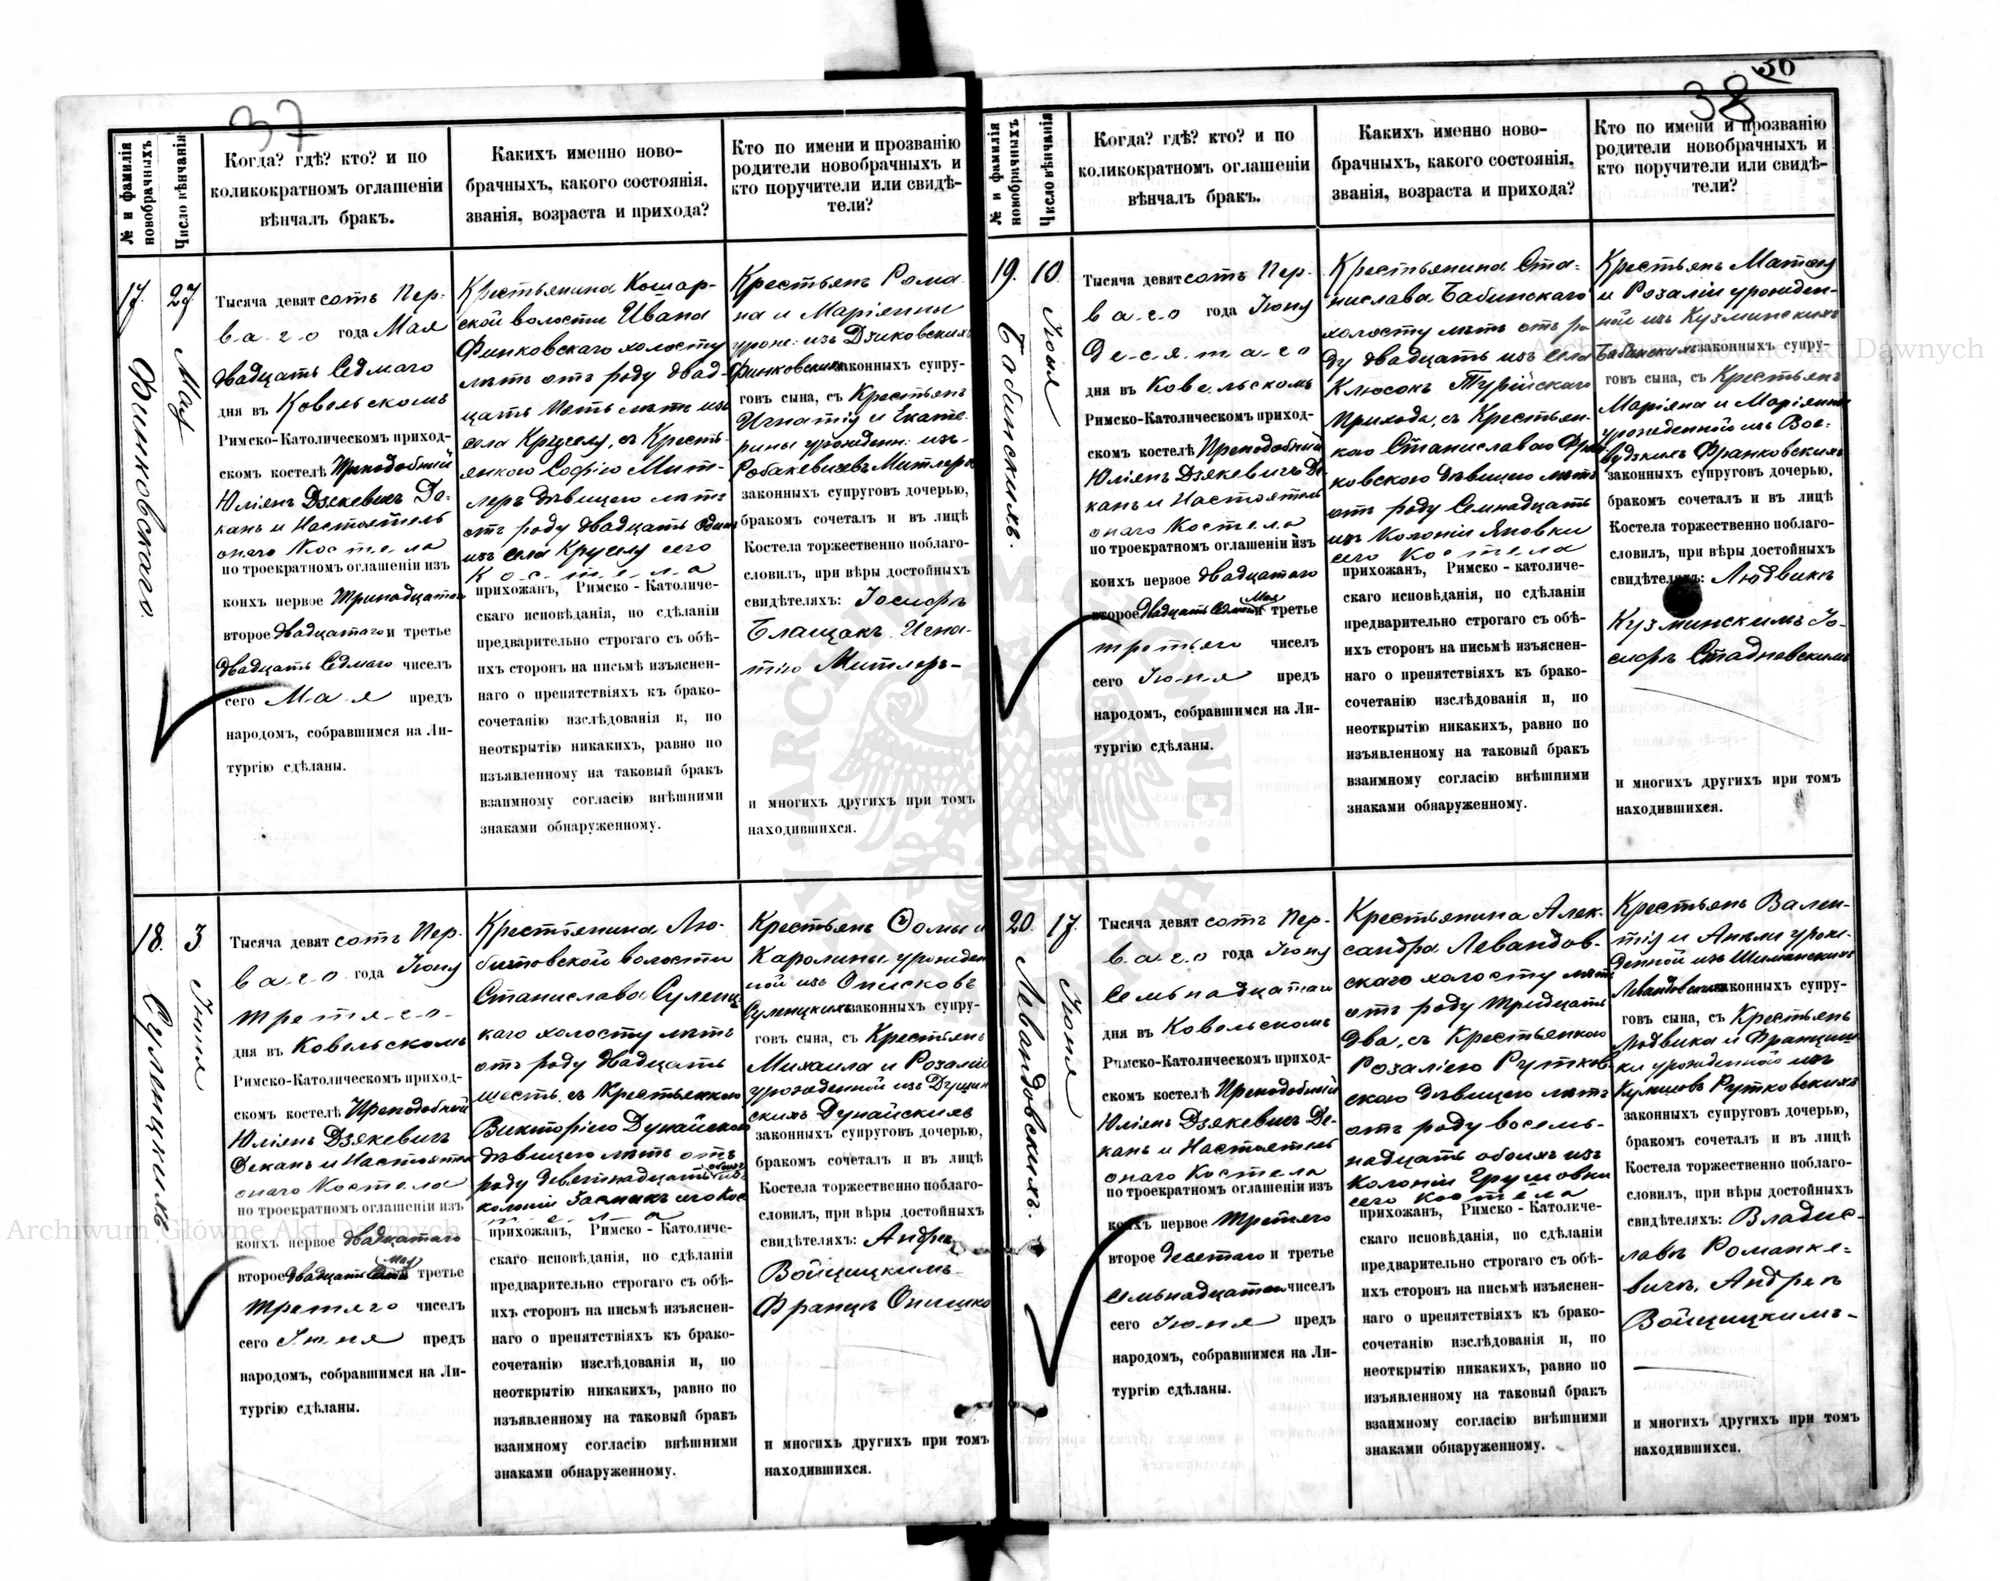 37
№ и фамилія новобрачныхъ
Число вѣнчанія
Когда? гдѣ? кто? и по
коликократномъ оглашеніи
вѣнчалъ бракъ.
Какихъ именно ново-
брачныхъ, какого состоянія,
званія, возраста и прихода?
Кто по имени и прозванію
родители новобрачныхъ и
кто поручители или свидѣ-
тели?
17.
Финковскаго.
27
Мая
Тысяча девятсотъ Пер-
ваго года Мая
двадцать Седмаго
дня въ Ковельскомъ
Римско-Католическомъ приход-
скомъ костелѣ Преподобный
Юліянъ Дзякевичъ Де-
канъ и Настоятель
онаго Костела
по троекратномъ оглашеніи изъ
коихъ первое Тринадцатаго
второе двадцатаго и третье
двадцать Седмаго чиселъ
сего Мая предъ
народомъ, собравшимся на Ли-
тургію сдѣланы.
Крестьянина Кошар-
ской волости Ивана
Финковскаго холосту
лѣтъ отъ роду двад-
цать пять лѣтъ изъ
села Кругелу, съ Кресть-
янкою Софіею Мит-
леръ дѣвицею лѣтъ
отъ роду двадцать одинъ
изъ села Кругелу сего
Костела
прихожанъ, Римско-Католиче-
скаго исповѣданія, по сдѣланіи
предварительно строгаго съ обѣ-
ихъ сторонъ на письмѣ изъяснен-
наго о препятствіяхъ къ брако-
сочетанію изслѣдованія и, по
неоткрытію никакихъ, равно по
изъявленному на таковый бракъ
взаимному согласію внѣшними
знаками обнаруженному.
Крестьянъ Рома
на и Маріянны
урожд: изъ Дзиковскихъ
Финковскихъ законныхъ супру-
говъ сына, съ Крестьянъ
Игнатія и Екате-
рины урожденн: изъ
Робакевичевъ Митлеръ
законныхъ супруговъ дочерью,
бракомъ сочеталъ и въ лицѣ
Костела торжественно поблаго-
словилъ, при вѣры достойныхъ
свидѣтеляхъ: Іосифъ
Блащакъ Игна-
тію Митлеръ-
и многихъ другихъ при томъ
находившихся.
18.
Сулецкихъ
3
Іюня
Тысяча девятсотъ Пер-
ваго года Іюня
третяго-
дня въ Ковельскомъ
Римско-Католическомъ приход-
скомъ костелѣ Преподобный
Юліянъ Дзякевичъ
Деканъ и Настоятель
онаго Костела
по троекратномъ оглашеніи изъ
коихъ первое двадцатаго
Мая
второе двадцать третье
третяго чиселъ
сего Іюня предъ
народомъ, собравшимся на Ли-
тургію сдѣланы.
Крестьянина Лю-
битовской волости
Станислава Сулец-
каго холосту лѣтъ
отъ роду двадцать
шесть, съ Крестьянкою
Викторіею Дунайскою
дѣвицею лѣтъ отъ
роду девятнадцать обоихъ изъ
колоніи сего Кос
тела
прихожанъ, Римско-Католиче-
скаго исповѣданія, по сдѣланіи
предварительно строгаго съ обѣ-
ихъ сторонъ на письмѣ изъяснен-
наго о препятствіяхъ къ брако-
сочетанію изслѣдованія и, по
неоткрытію никакихъ, равно по
изъявленному на таковый бракъ
взаимному согласію внѣшними
знаками обнаруженному.
Крестьянъ Ѳомы и
Каролины урожден
ной изъ Описковъ
Сулецкихъ законныхъ супру-
говъ сына, съ Крестьянъ
Михаила и Розаліи
урожденной изъ Душин
скихъ Дунайскихъ
законныхъ супруговъ дочерью,
бракомъ сочеталъ и въ лицѣ
Костела торжественно поблаго-
словилъ, при вѣры достойныхъ
свидѣтеляхъ: Андрей
Войцицкимъ-
Францъ
и многихъ другихъ при томъ
находившихся.
36
38
№ и фамилія новобрачныхъ
Число вѣнчанія
Когда? гдѣ? кто? и по
коликократномъ оглашеніи
вѣнчалъ бракъ.
Какихъ именно ново-
брачныхъ, какого состоянія,
званія, возраста и прихода?
Кто по имени и прозванію
родители новобрачныхъ и
кто поручители или свидѣ-
тели?
19.
Бабинскихъ.
10.
Іюня
Тысяча девятсотъ Пер-
ваго года Іюня
Десятаго
дня въ Ковельскомъ
Римско-Католическомъ приход-
скомъ костелѣ Преподобный
Юліянъ Дзякевичъ Де-
канъ и Настоятель
онаго Костела
по троекратномъ оглашеніи изъ
коихъ первое двадцатаго
Мая
второе двадцать седмаго и третье
третьяго чиселъ
сего Іюня предъ
народомъ, собравшимся на Ли-
тургію сдѣланы.
Крестьянина Ста-
нислава Бабинскаго
холосту лѣтъ отъ ро-
ду двадцать изъ села
Клюсокъ Турійскаго
прихода, съ Крестьян-
кою Станиславою Фран
ковскою дѣвицею лѣтъ
отъ роду Семнадцать
изъ Колоніи Яновки
сего Костела
прихожанъ, Римско-католиче-
скаго исповѣданія, по сдѣланіи
предварительно строгаго съ обѣ-
ихъ сторонъ на письмѣ изъяснен-
наго о препятствіяхъ къ брако-
сочетанію изслѣдованія и, по
неоткрытію никакихъ, равно по
изъявленному на таковый бракъ
взаимному согласію внѣшними
знаками обнаруженному.
Крестьянъ Матвея
и Розаліи урожден-
ной изъ Кузминскихъ
Бабинскихъ законныхъ супру-
говъ сына, съ Крестьянъ
Маріяна и Маріянны
урожденной изъ Вое-
вудзкихъ Франковскихъ
законныхъ супруговъ дочерью,
бракомъ сочеталъ и въ лицѣ
Костела торжественно поблаго-
словилъ, при вѣры достойныхъ
свидѣтеляхъ: Людвикъ
Кузминскимъ Іо-
сифъ Стадневскимъ
и многихъ другихъ при томъ
находившихся.
20.
Левандовскихъ.
17.
Іюня
Тысяча девятсотъ Пер-
ваго года Іюня
Семьнадцатаго
дня въ Ковельскомъ
Римско-Католическомъ приход-
скомъ костелѣ Преподобный
Юліянъ Дзякевичъ Де-
канъ и Настоятель
онаго Костела
по троекратномъ оглашеніи изъ
коихъ первое третяго
второе десятаго и третье
семьнадцатаго чиселъ
сего Іюня предъ
народомъ, собравшимся на Ли-
тургію сдѣланы.
Крестьянина Алек-
сандра Левандов-
скаго холосту лѣтъ
отъ роду тридцать
два, съ Крестьянкою
Розаліею Рутков-
скою дѣвицею лѣтъ
отъ роду восемь-
надцать обоихъ изъ
колоніи Грушовки
сего Костела
прихожанъ, Римско-Католиче-
скаго исповѣданія, по сдѣланіи
предварительно строгаго съ обѣ-
ихъ сторонъ на письмѣ изъяснен-
наго о препятствіяхъ къ брако-
сочетанію изслѣдованія и, по
неоткрытію никакихъ, равно по
изъявленному на таковый бракъ
взаимному согласію внѣшними
знаками обнаруженному.
Крестьянъ Вален-
тія и Анели урож-
денной изъ Шиманскихъ
Левандовскихъ законныхъ супру-
говъ сына, съ Крестьянъ
Людвика и Францишки
ки урожденной изъ
Рутковскихъ
законныхъ супруговъ дочерью,
бракомъ сочеталъ и въ лицѣ
Костела торжественно поблаго-
словилъ, при вѣры достойныхъ
свидѣтеляхъ: Владис-
лавъ Романке-
вичъ, Андрей
Войцицкимъ-
и многихъ другихъ при томъ
находившихся.
Archiwum Główne Akt Dawnych
Archiwum Główne Akt Dawnych
ARCHIWUM GŁÓWNE AKT DAWNYCH